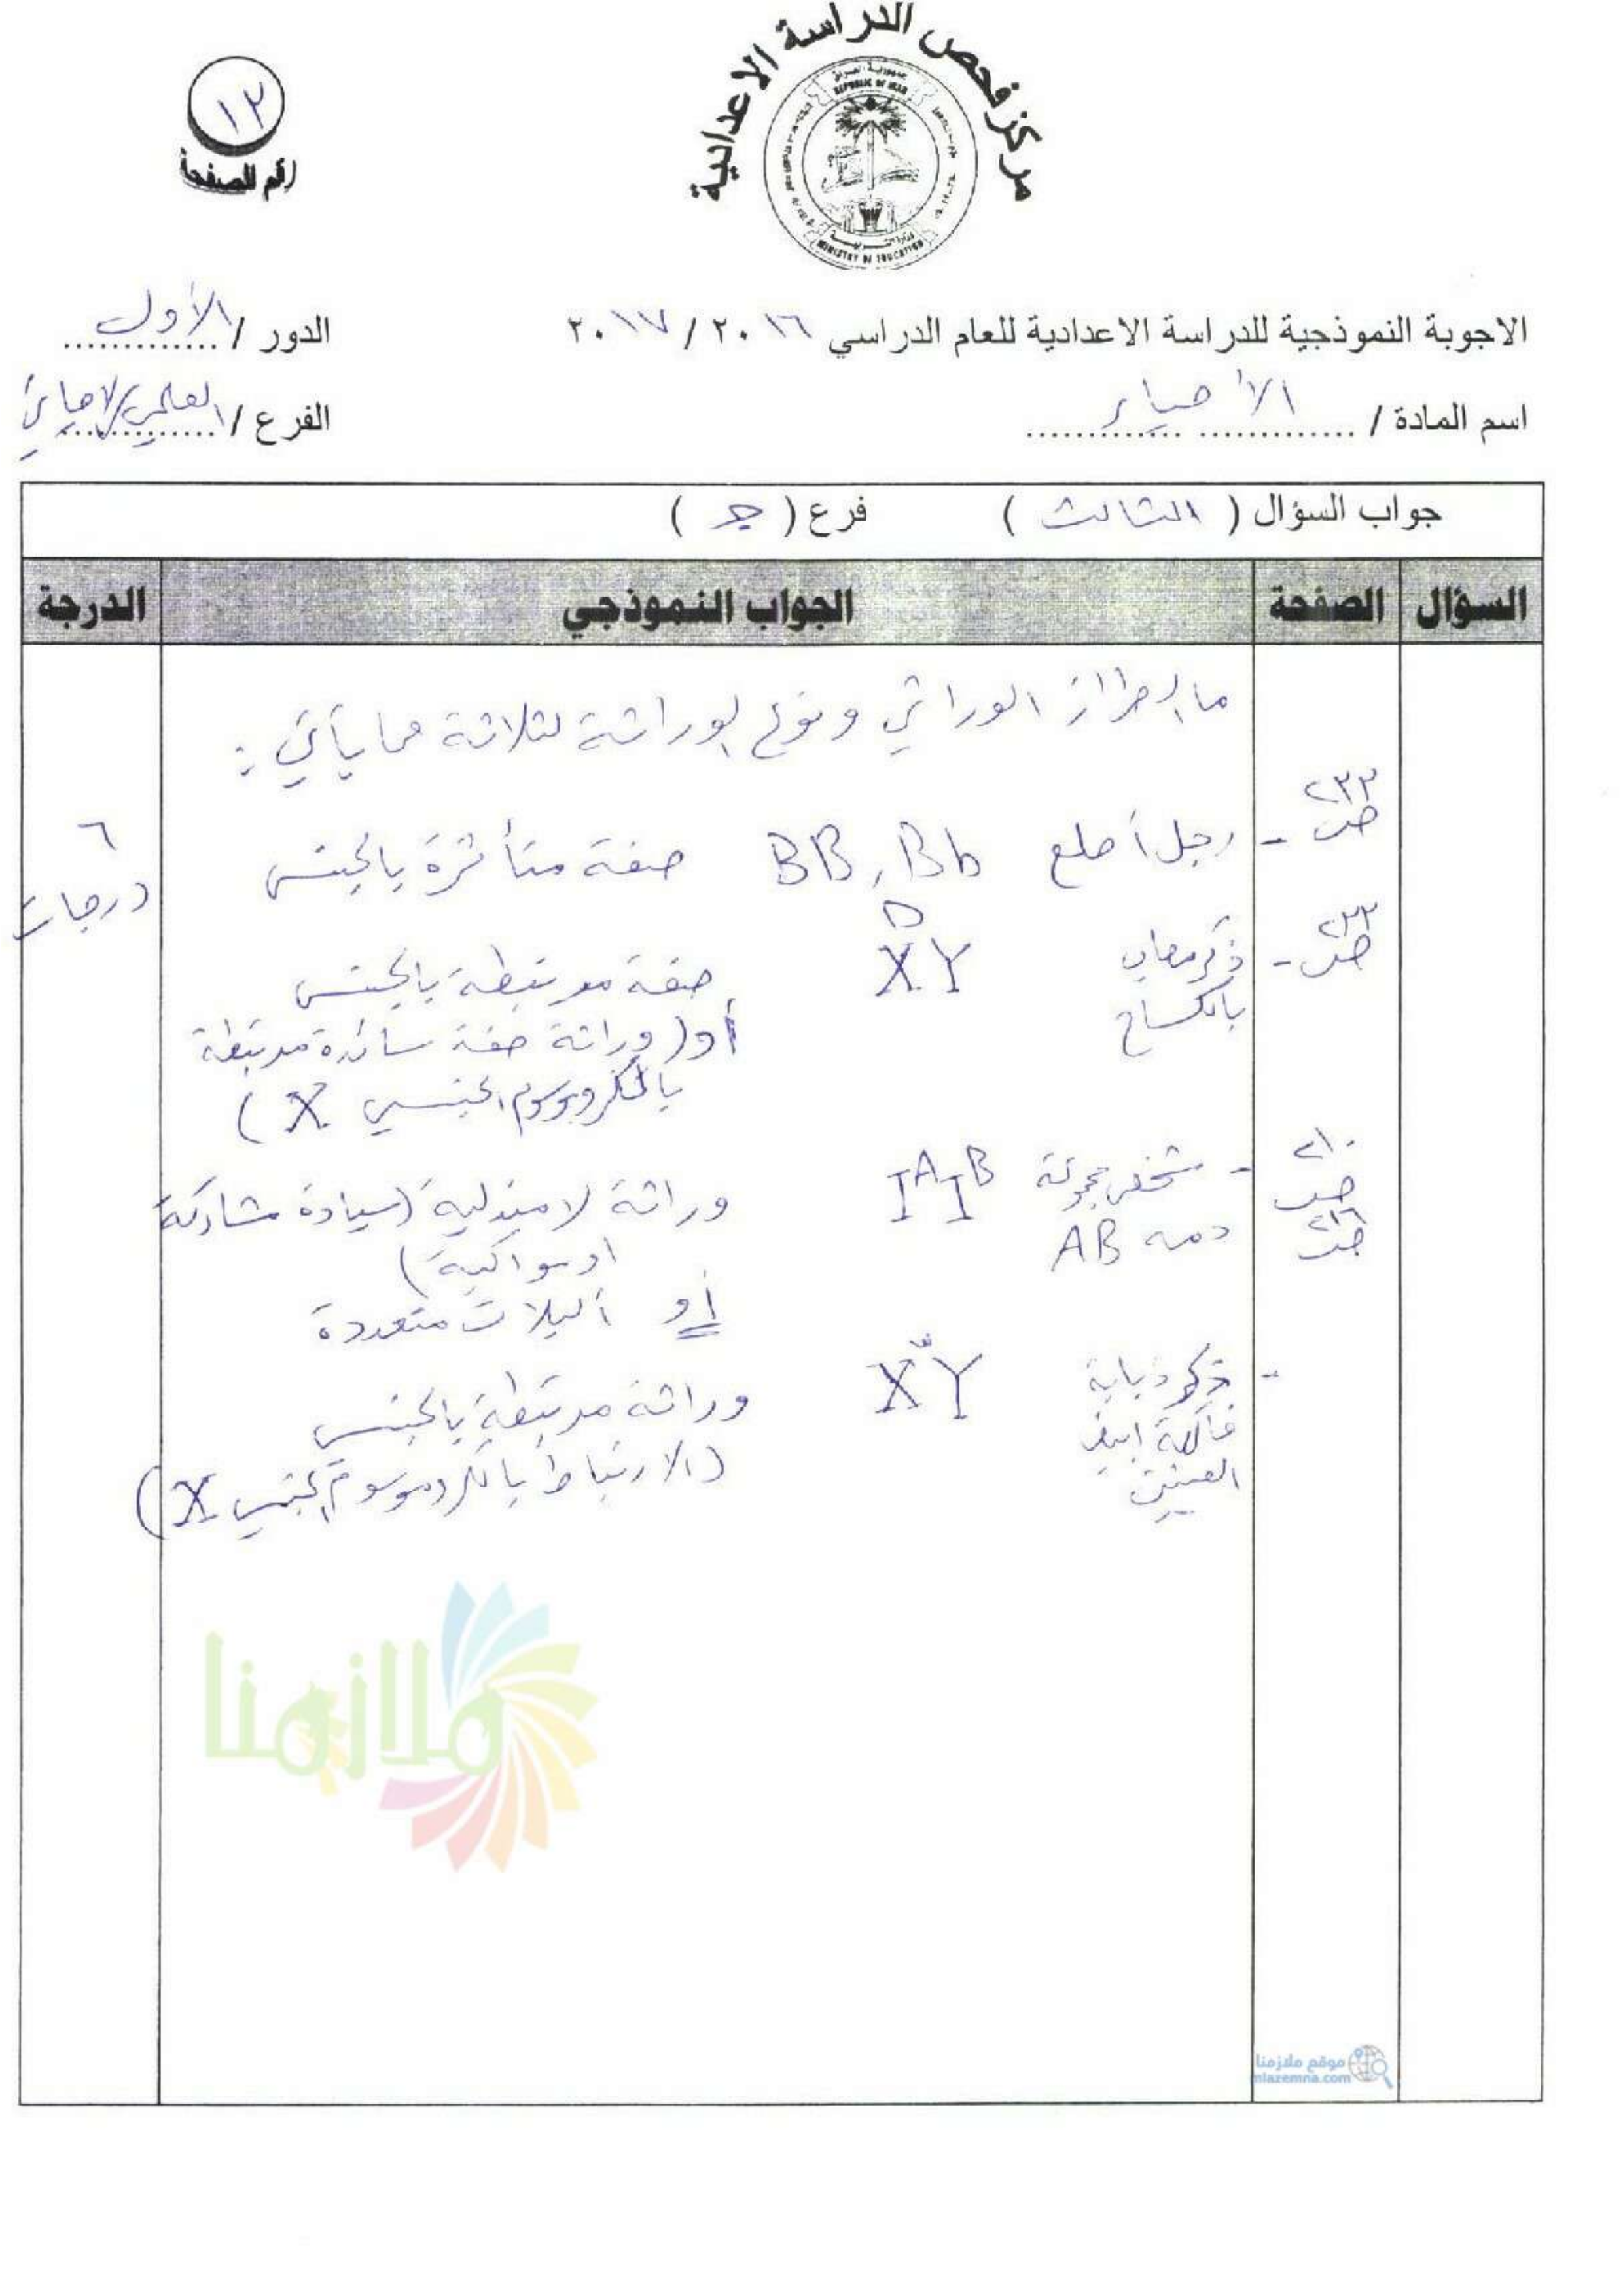 مركز فحص الدراسة الاعدادية
REPUBLIC OF IRAQ
MINISTRY OF EDUCATION
١٣
رقم الصفحة
الاجوبة النموذجية للدراسة الاعدادية للعام الدراسي ٢٠١٦ / ٢٠١٧
الدور / الأول
اسم المادة / الأحياء
الفرع / العلمي/الاحيائي
جواب السؤال ( الثالث ) فرع ( جـ )
السؤال الصفحة الجواب النموذجي الدرجة
ما الطراز الوراثي ونوع الوراثة لثلاثة مما يأتي :
ص٢٣٣ - رجل أصلع BB , Bb صفة متأثرة بالجنس
٦ درجات
ص٢٣٣ - ذكر مصاب بالكساح XᴰY صفة مرتبطة بالجنس
أو (وراثة صفة سائدة مرتبطة
بالكروموسوم الجنسي X )
ص٢١٠ - شخص مجموعة دمه AB IᴬIᴮ وراثة لامندلية (سيادة مشاركة
ص٢١٦
او مواكبة)
أو أليلات متعددة
- ذكر ذبابة فاكهة ابيض العينين XʷY وراثة مرتبطة بالجنس
(الارتباط بالكروموسوم الجنسي X)
ملازمنا
موقع ملازمنا
mlazemna.com